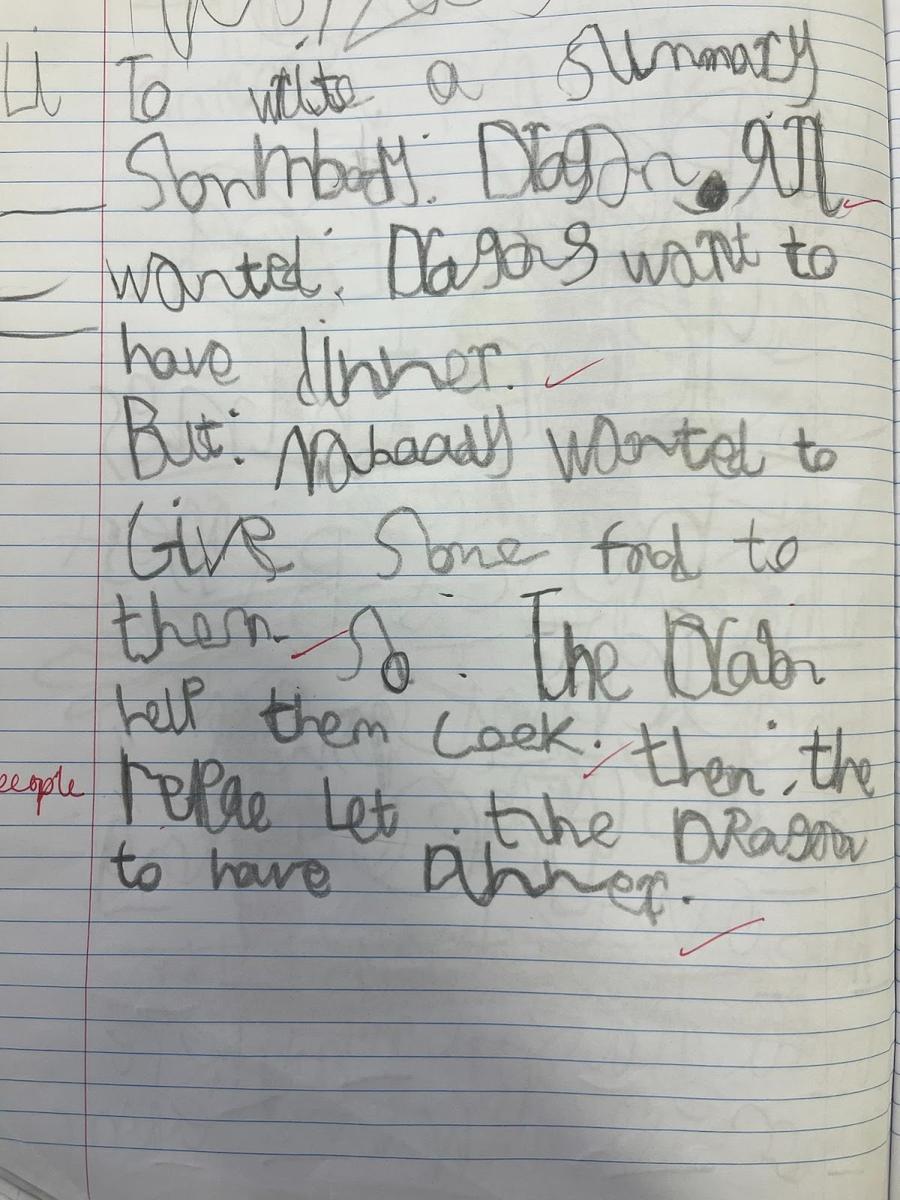 LI To write a Summary
Sommbody: Dragon. girl
wanted: Dragons want to
have dinner.
But: Nobaody wanted to
Give Some food to
them. So: The Dran
help them Cook. then, the
people
repae Let the DRagon
to have Dinner.